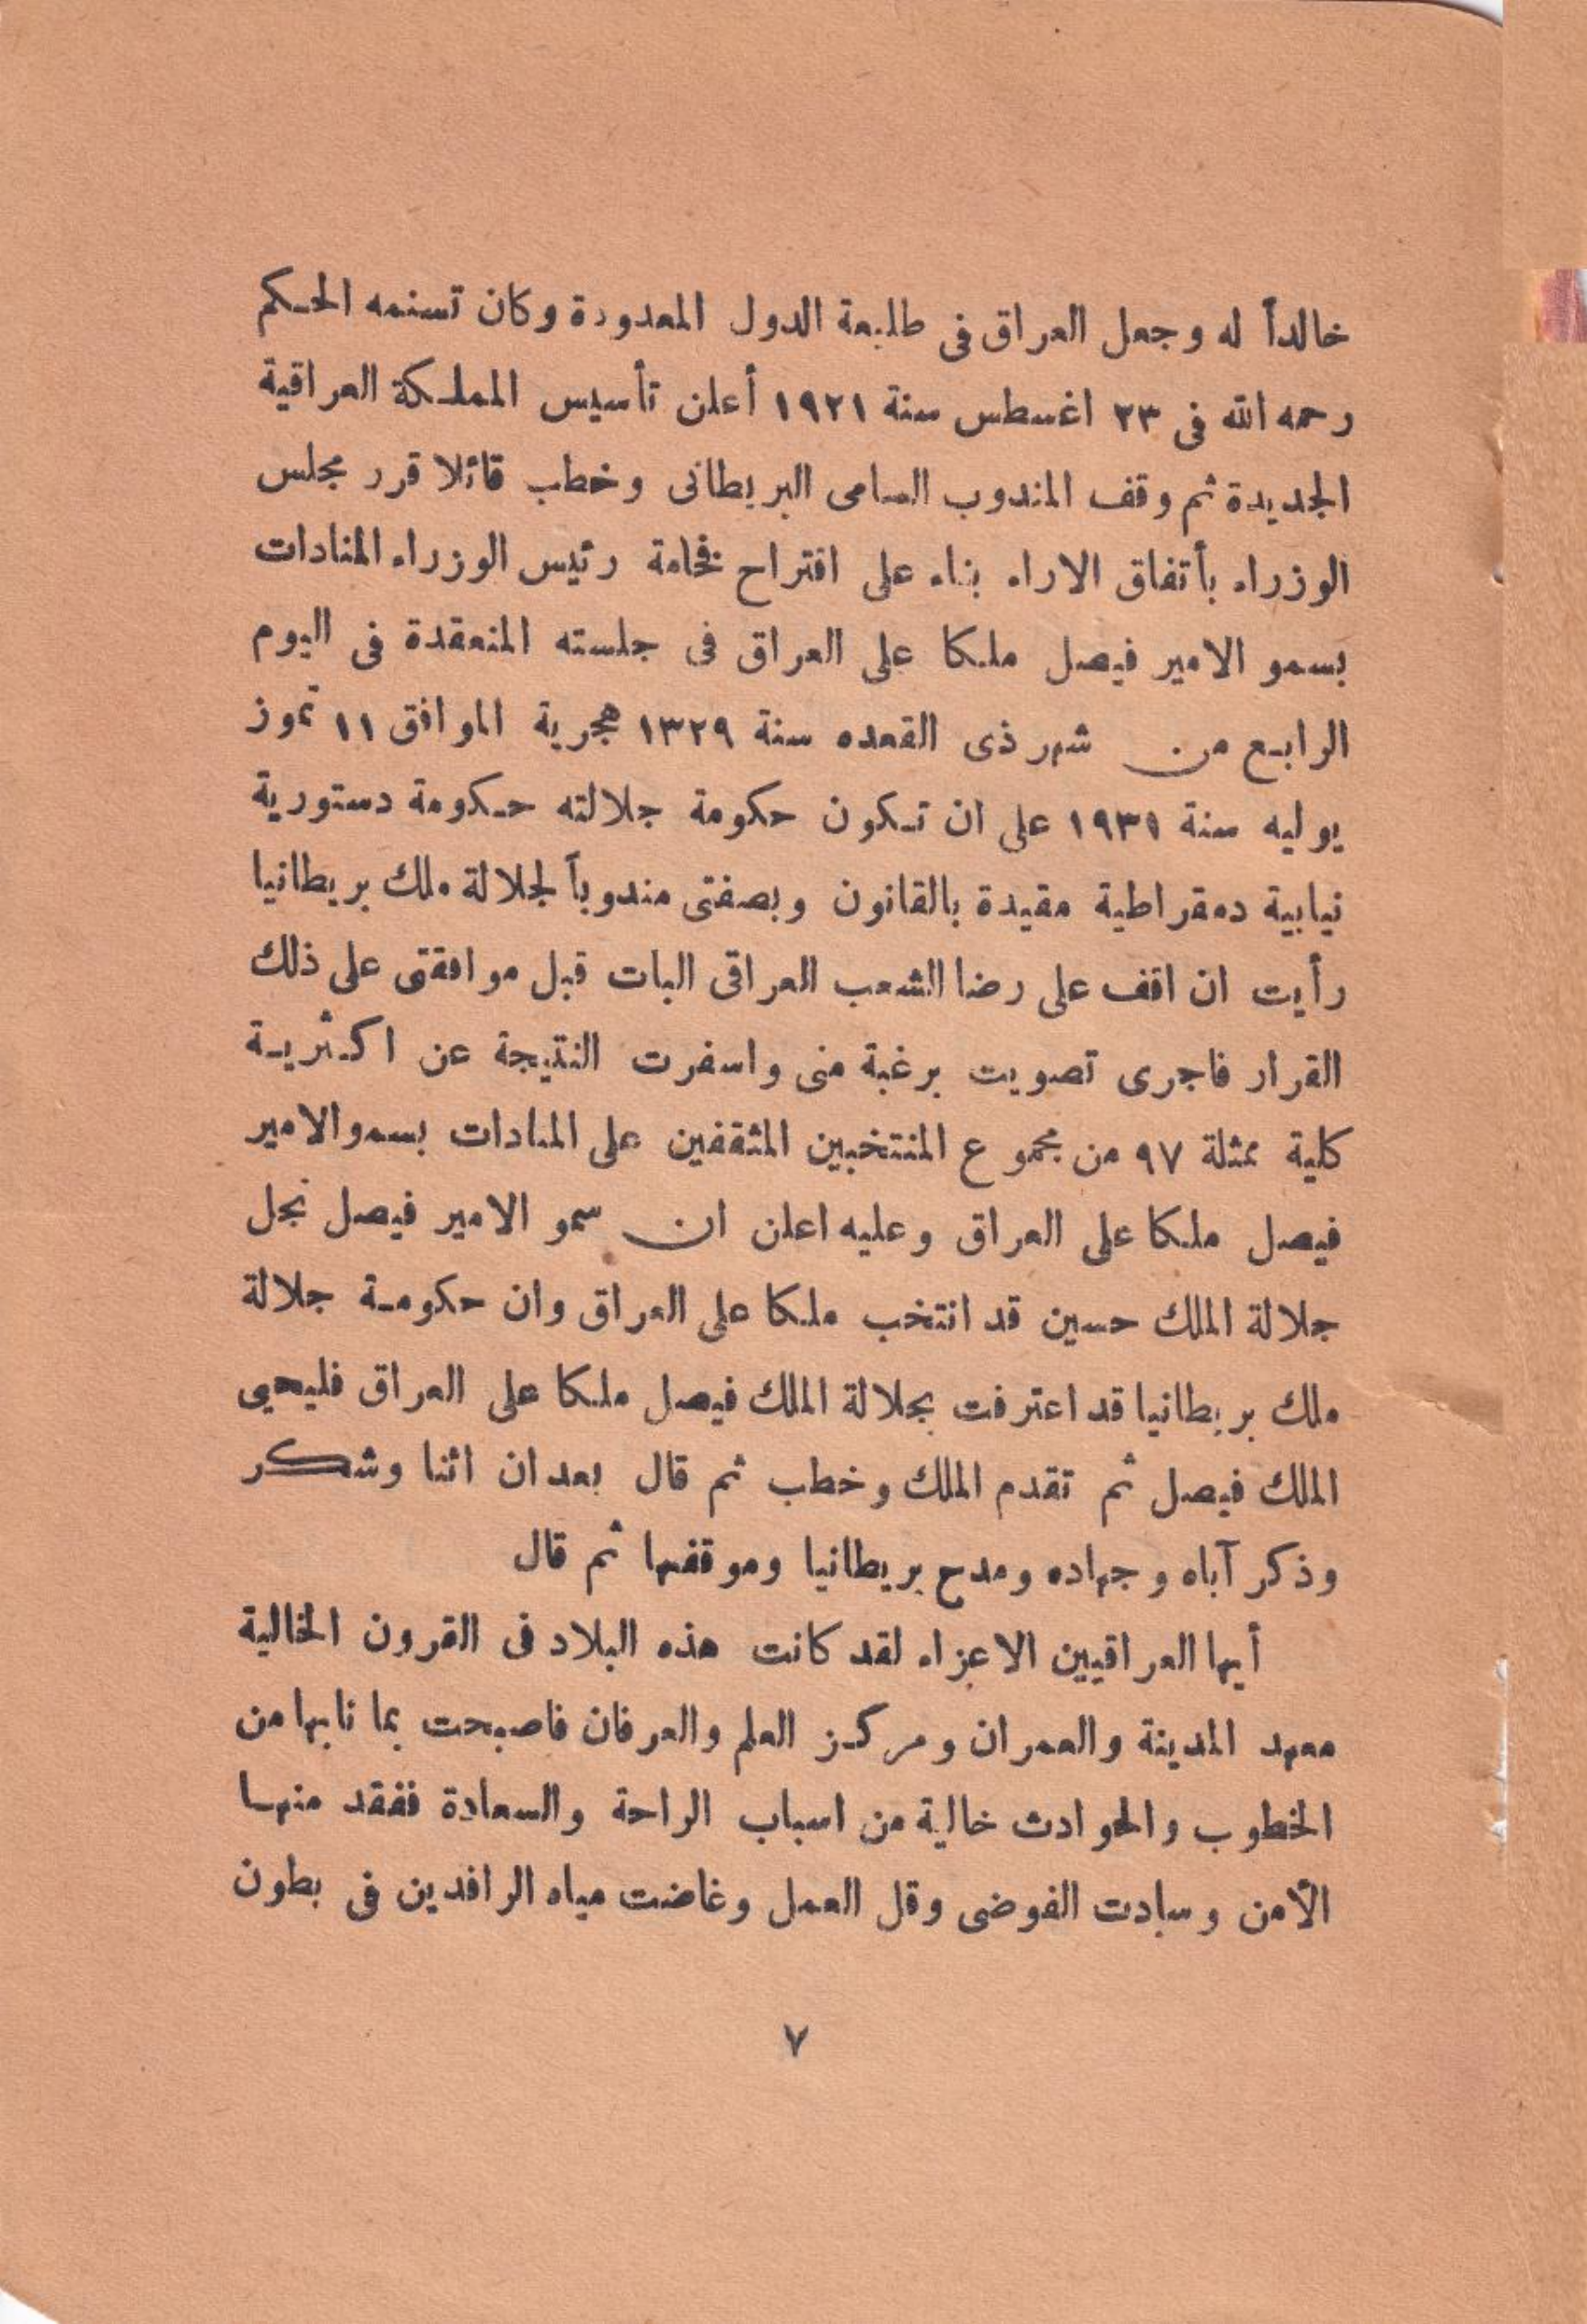 خالداً له وجعل العراق فى طليعة الدول المعدودة وكان تسنمه الحكم
رحمه الله فى ٢٣ اغسطس سنة ١٩٢١ أعلن تأسيس المملكة العراقية
الجديدة ثم وقف المندوب السامى البريطانى وخطب قائلا قرر مجلس
الوزراء بأتفاق الاراء بناء على اقتراح فخامة رئيس الوزراء المنادات
بسمو الامير فيصل ملكا على العراق فى جلسته المنعقدة فى اليوم
الرابع من شهر ذى القعده سنة ١٣٢٩ هجرية الموافق ١١ تموز
يوليه سنة ١٩٣١ على ان تكون حكومة جلالته حكومة دستورية
نيابية دمقراطية مقيدة بالقانون وبصفتى مندوباً لجلالة ملك بريطانيا
رأيت ان اقف على رضا الشعب العراقى البات قبل موافقتى على ذلك
القرار فاجرى تصويت برغبة منى واسفرت النتيجة عن اكثرية
كلية ممثلة ٩٧ من مجموع المنتخبين المثقفين على المنادات بسمو الامير
فيصل ملكا على العراق وعليه اعلن ان سمو الامير فيصل نجل
جلالة الملك حسين قد انتخب ملكا على العراق وان حكومة جلالة
ملك بريطانيا قد اعترفت بجلالة الملك فيصل ملكا على العراق فليحيى
الملك فيصل ثم تقدم الملك وخطب ثم قال بعد ان اثنا وشكر
وذكر آباه وجهاده ومدح بريطانيا وموقفها ثم قال
أيها العراقيين الاعزاء لقد كانت هذه البلاد فى القرون الخالية
معهد المدينة والعمران ومركز العلم والعرفان فاصبحت بما نابها من
الخطوب والحوادث خالية من اسباب الراحة والسعادة ففقد منها
الأمن وسادت الفوضى وقل العمل وغاضت مياه الرافدين فى بطون
٧